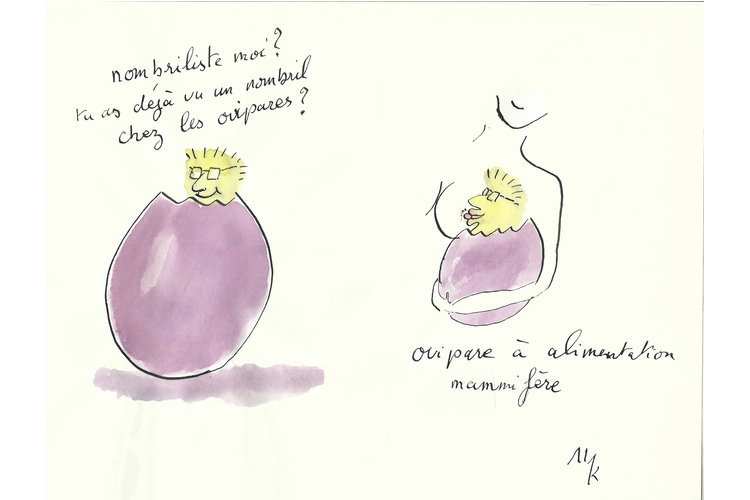 nombriliste moi?
tu as déjà vu un nombril
chez les ovipares?
ovipare à alimentation
mammifère